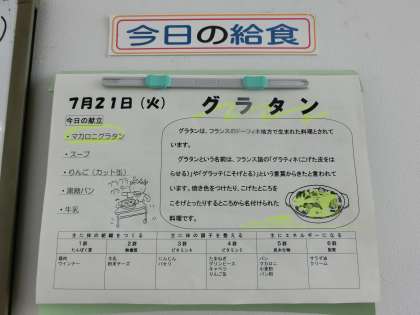 今日の給食
7月21日（火） グラタン
今日の献立
・マカロニグラタン
・スープ
・りんご（カット缶）
・黒糖パン
・牛乳
グラタンは、フランスのドーフィネ地方で生まれた料理とされて
います。
グラタンという名前は、フランス語の「グラティネ（こげた皮をは
らせる）」や「グラッテ（こそげとる）」という言葉からきたと言われて
います。焼き色をつけたり、こげたところを
こそげとったりするところから名付けられた
料理です。
主に体の組織をつくる 主に体の調子を整える 主にエネルギーになる
1群 2群 3群 4群 5群 6群
たんぱく質 無機質 ビタミンA ビタミンC 炭水化物 脂質
鶏肉 牛乳 にんじん たまねぎ パン サラダ油
ウインナー 粉末チーズ パセリ グリンピース マカロニ クリーム
キャベツ 小麦粉
りんご缶 パン粉